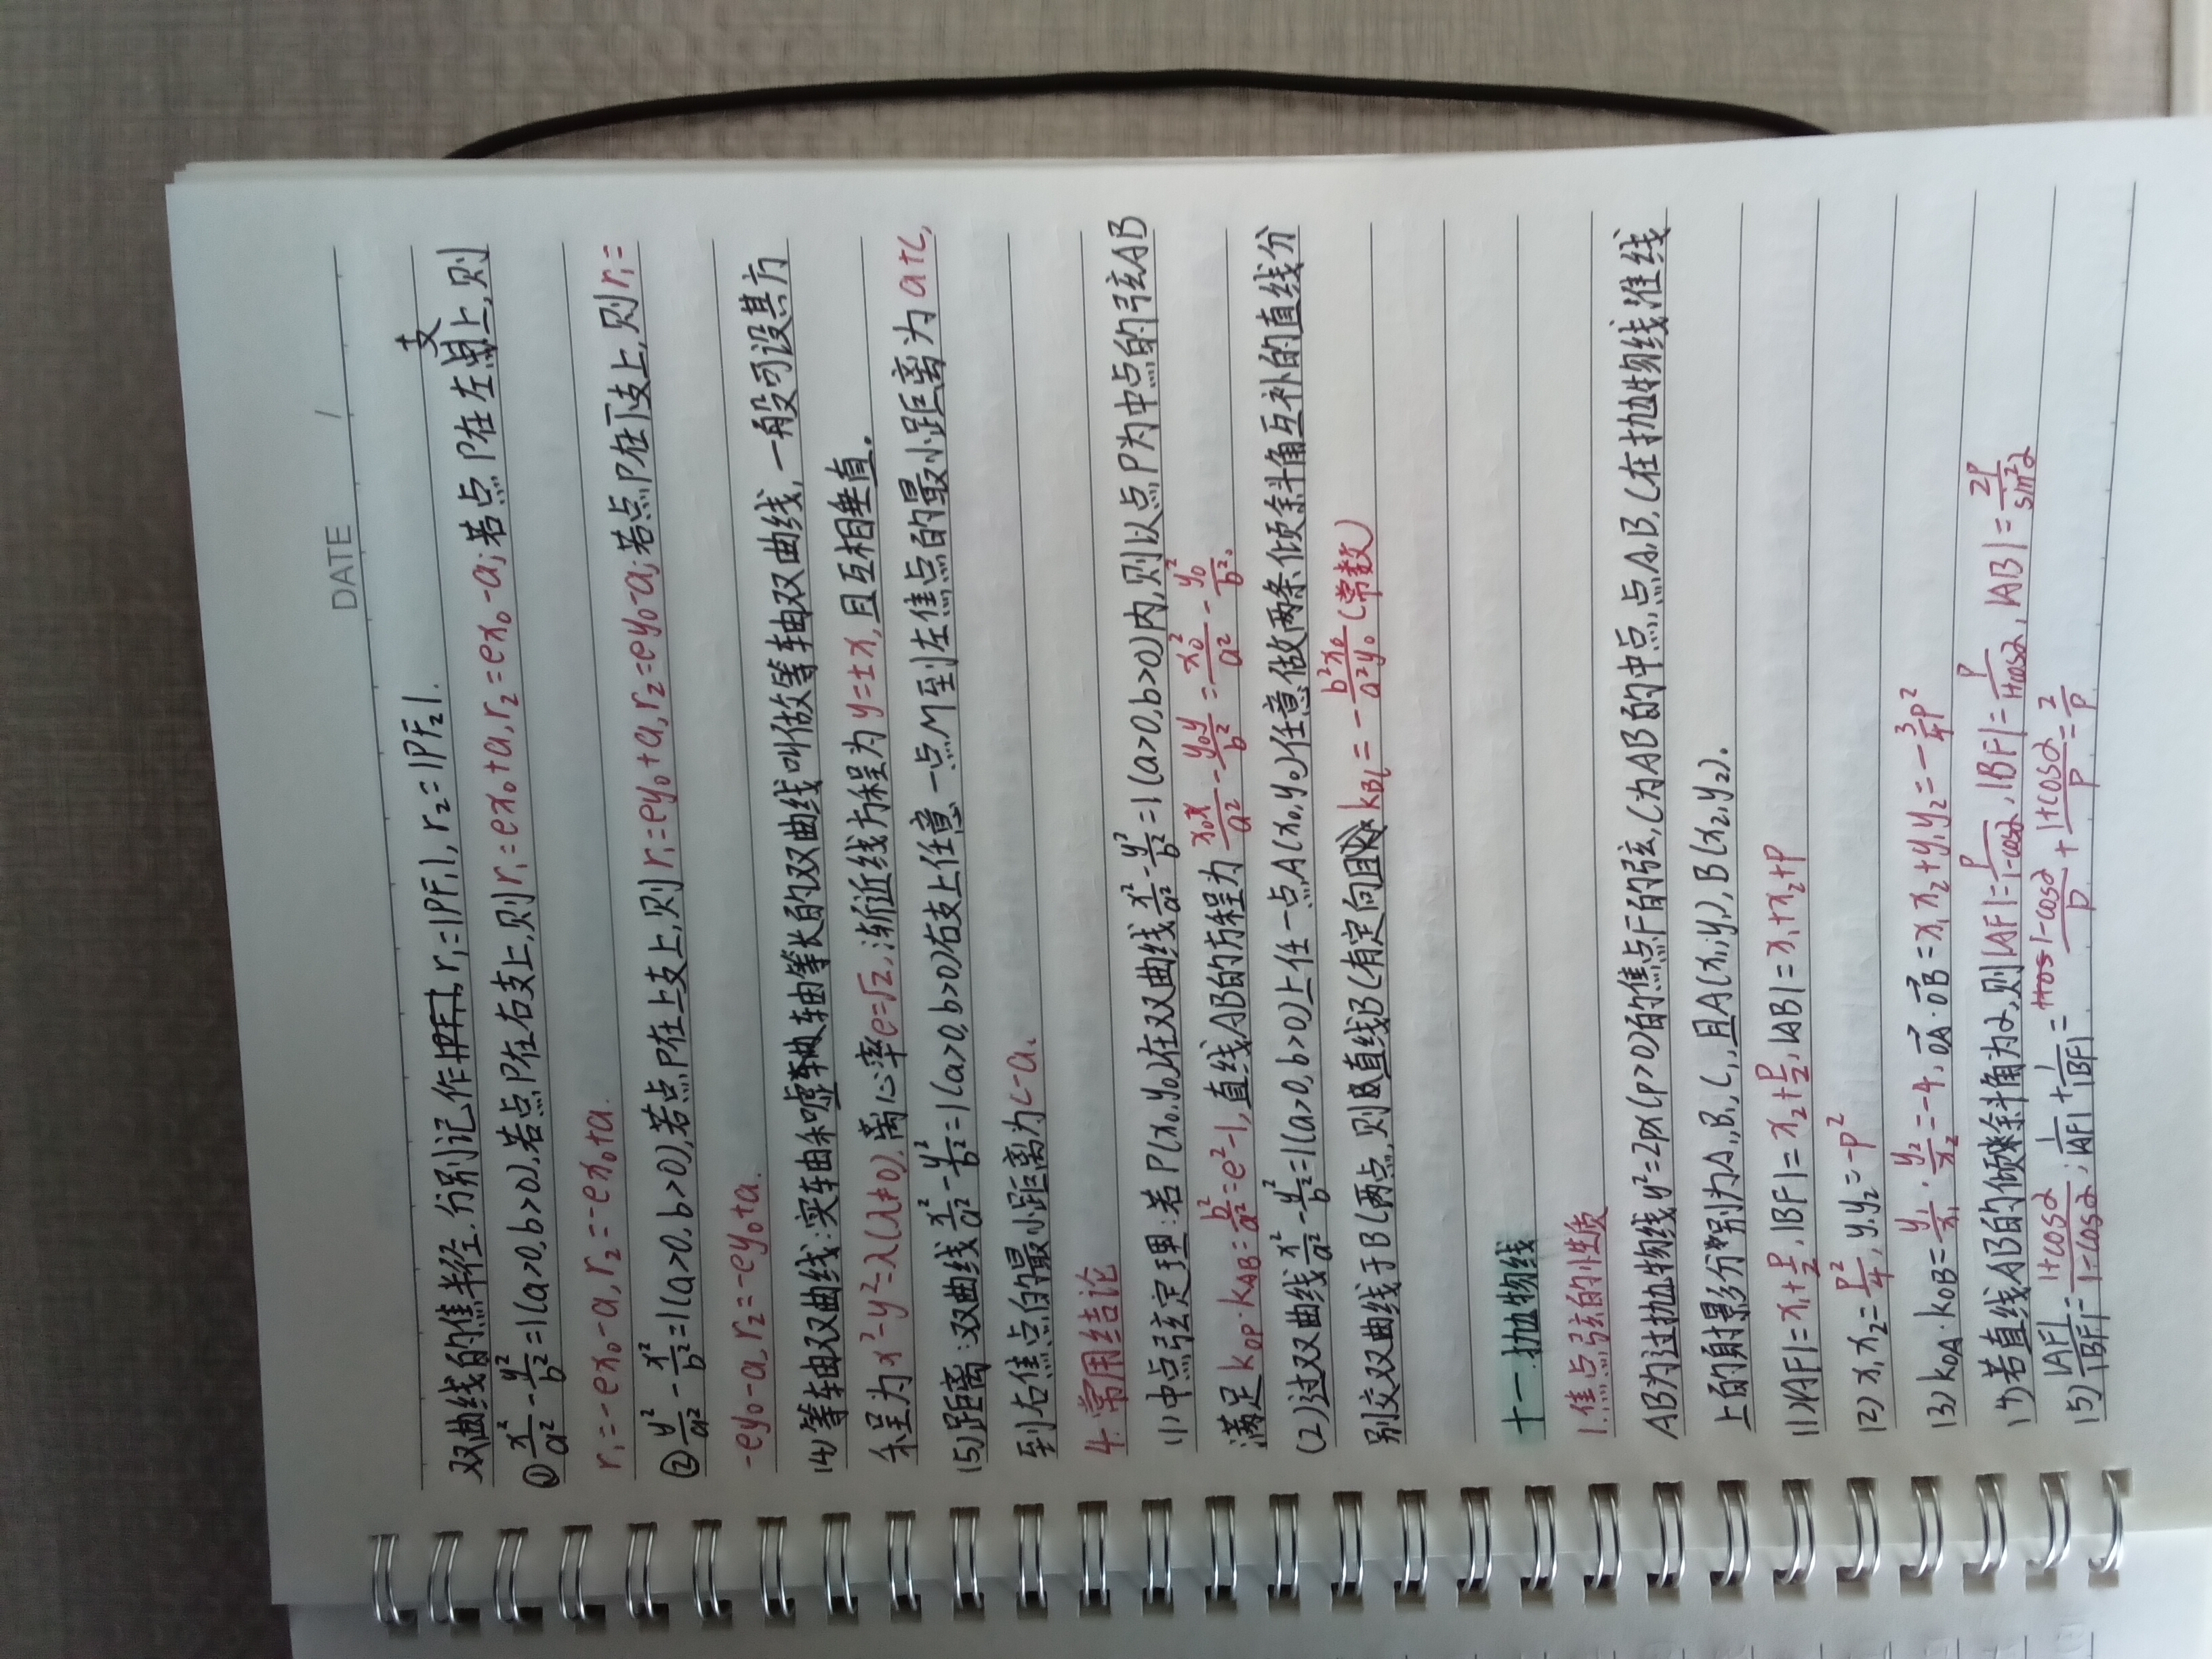 DATE /
双曲线的焦半径.分别记作|PF₁|, r₁=|PF₁|, r₂=|PF₂|.
① x²/a² - y²/b² = 1(a>0,b>0).若点P在右支上,则r₁=ex₀+a,r₂=ex₀-a;若点P在左支上,则
r₁=-ex₀-a,r₂=-ex₀+a.
② y²/a² - x²/b² = 1(a>0,b>0),若点P在上支上,则r₁=ey₀+a,r₂=ey₀-a;若点P在下支上,则r₁=
-ey₀-a,r₂=-ey₀+a.
(4)等轴双曲线:实轴和嘘轴等长的双曲线叫做等轴双曲线,一般可设其方
程为x²-y²=λ(λ≠0).离心率e=√2,渐近线方程为y=±x,且互相垂直.
(5)距离:双曲线x²/a² - y²/b² = 1(a>0,b>0)右支上任意一点M到左焦点的最小距离为a+c,
到右焦点的最小距离为c-a.
4.常用结论
(1)中点弦定理:若P(x₀,y₀)在双曲线x²/a² - y²/b² = 1(a>0,b>0)内,则以点P为中点的弦AB
满足k_OP·k_AB = b²/a² = e²-1,直线AB的方程为 x₀x/a² - y₀y/b² = x₀²/a² - y₀²/b².
(2)过双曲线x²/a² - y²/b² = 1(a>0,b>0)上任一点A(x₀,y₀)任意做两条倾斜角互补的直线分
别交双曲线于BC两点,则直线BC有定向且k_BC = - b²x₀/a²y₀ (常数)
十一.抛物线
1.焦点弦的性质
AB为过抛物线y²=2px(p>0)的焦点F的弦,C为AB的中点,点A,B,C在抛物线准线
上的射影分别为A₁,B₁,C₁,且A(x₁,y₁),B(x₂,y₂).
(1)|AF|=x₁+p/2,|BF|=x₂+p/2,|AB|=x₁+x₂+p
(2)x₁x₂=p²/4,y₁y₂=-p²
(3)k_OA·k_OB = y₁/x₁·y₂/x₂ = -4. OA·OB = x₁x₂+y₁y₂ = -3/4p²
(4)若直线AB的倾斜角为α,则|AF|=p/1-cosα,|BF|=p/1+cosα,|AB|=2p/sin²α
(5)|AF|/|BF| = 1+cosα/1-cosα; 1/|AF| + 1/|BF| = 1-cosα/p + 1+cosα/p = 2/p